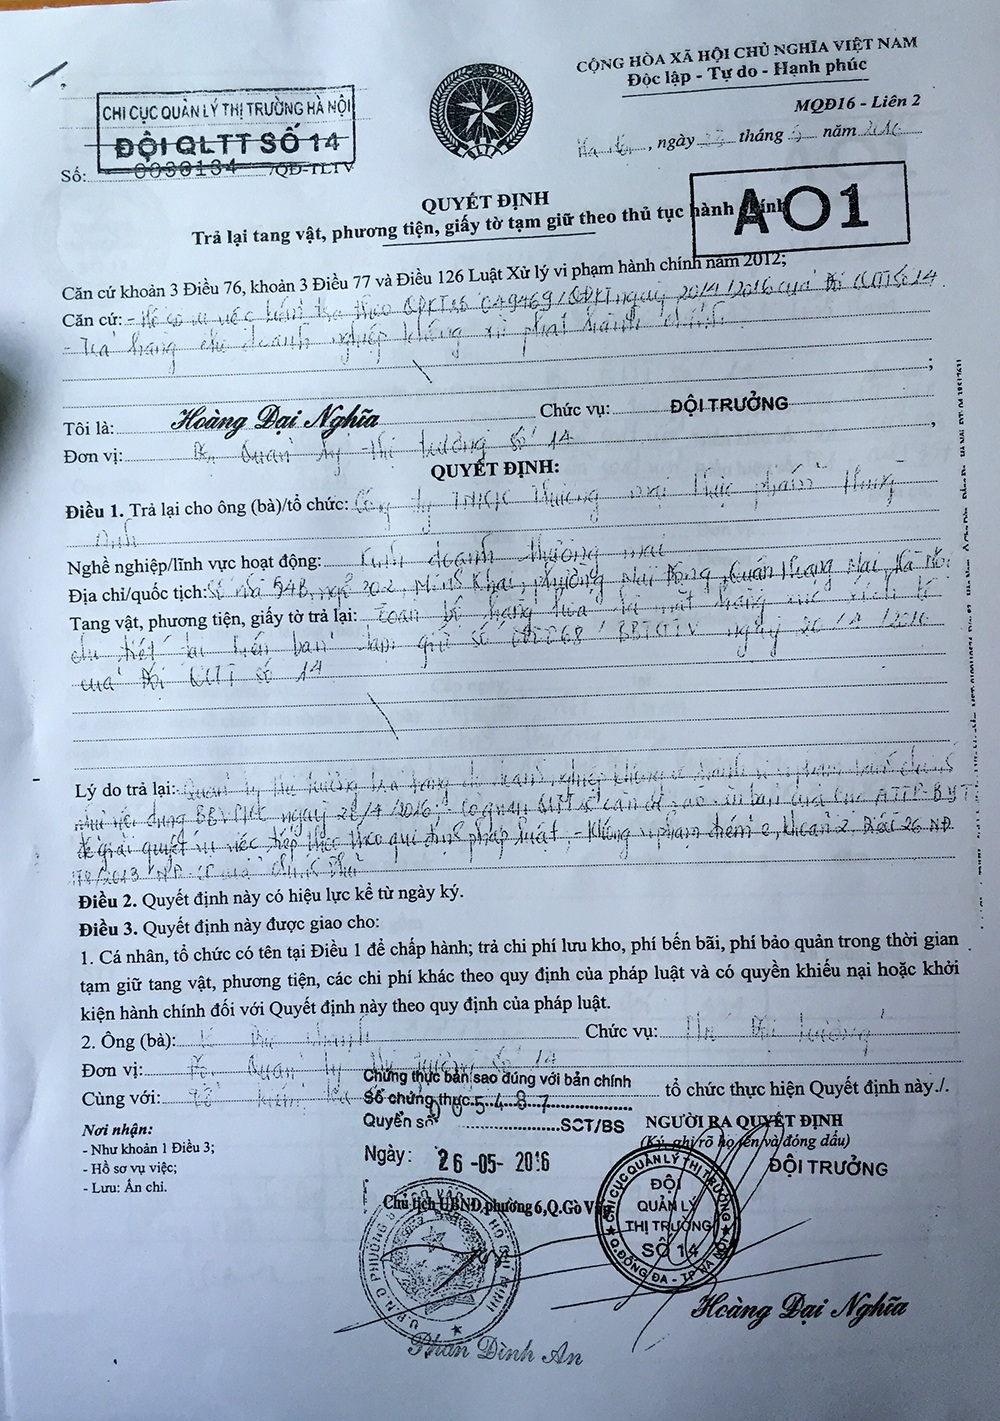 CỘNG HÒA XÃ HỘI CHỦ NGHĨA VIỆT NAM
Độc lập - Tự do - Hạnh phúc
CHI CỤC QUẢN LÝ THỊ TRƯỜNG HÀ NỘI
ĐỘI QLTT SỐ 14
MQĐ16 - Liên 2
Số: 0030134 /QĐ-TLTV
, ngày tháng năm 2016
QUYẾT ĐỊNH
Trả lại tang vật, phương tiện, giấy tờ tạm giữ theo thủ tục hành chính
A01
Căn cứ khoản 3 Điều 76, khoản 3 Điều 77 và Điều 126 Luật Xử lý vi phạm hành chính năm 2012;
Căn cứ: - Hồ sơ vụ việc kiểm tra theo QĐKT số 049469/QĐKT ngày 20/4/2016 của Đội QLTT số 14
- Trả hàng cho doanh nghiệp không xử phạt hành chính
;
Tôi là: Hoàng Đại Nghĩa Chức vụ: ĐỘI TRƯỞNG
Đơn vị: Đội Quản lý thị trường số 14 ,
QUYẾT ĐỊNH:
Điều 1. Trả lại cho ông (bà)/tổ chức: Công ty TNHH thương mại thực phẩm
Anh
Nghề nghiệp/lĩnh vực hoạt động: Kinh doanh thương mại
Địa chỉ/quốc tịch: Số nhà 54B, ngõ 202, Minh Khai, phường Mai Động, Quận Hoàng Mai, Hà Nội
Tang vật, phương tiện, giấy tờ trả lại: Toàn bộ hàng hóa là mặt hàng xúc xích
chi tiết tại biên bản tạm giữ số ngày 20/4/2016
của Đội QLTT số 14
Lý do trả lại: Quản lý thị trường
như nội dung ngày 28/4/2016 Cục ATTP-BYT
để giải quyết vụ việc tiếp theo theo qui định pháp luật, - Không vi phạm điểm e, khoản 2. Điều 26 NĐ
178/2013 NĐ-CP của Chính Phủ
Điều 2. Quyết định này có hiệu lực kể từ ngày ký.
Điều 3. Quyết định này được giao cho:
1. Cá nhân, tổ chức có tên tại Điều 1 để chấp hành; trả chi phí lưu kho, phí bến bãi, phí bảo quản trong thời gian
tạm giữ tang vật, phương tiện, các chi phí khác theo quy định của pháp luật và có quyền khiếu nại hoặc khởi
kiện hành chính đối với Quyết định này theo quy định của pháp luật.
2. Ông (bà): Chức vụ: Phó Đội trưởng
Đơn vị: Đội Quản lý thị trường số 14
Cùng với: Tổ kiểm tra tổ chức thực hiện Quyết định này./.
Chứng thực bản sao đúng với bản chính
Số chứng thực 005487
Quyển số SCT/BS
Ngày: 26 -05- 2016
Chủ tịch UBND phường 6,Q.Gò Vấp
Nơi nhận:
- Như khoản 1 Điều 3;
- Hồ sơ vụ việc;
- Lưu: Ấn chỉ.
NGƯỜI RA QUYẾT ĐỊNH
(Ký, ghi rõ họ tên và đóng dấu)
ĐỘI TRƯỞNG
CHI CỤC QUẢN LÝ THỊ TRƯỜNG
ĐỘI
QUẢN LÝ
THỊ TRƯỜNG
SỐ 14
Q.ĐỐNG ĐA - TP HÀ NỘI
Hoàng Đại Nghĩa
Phan Đình An